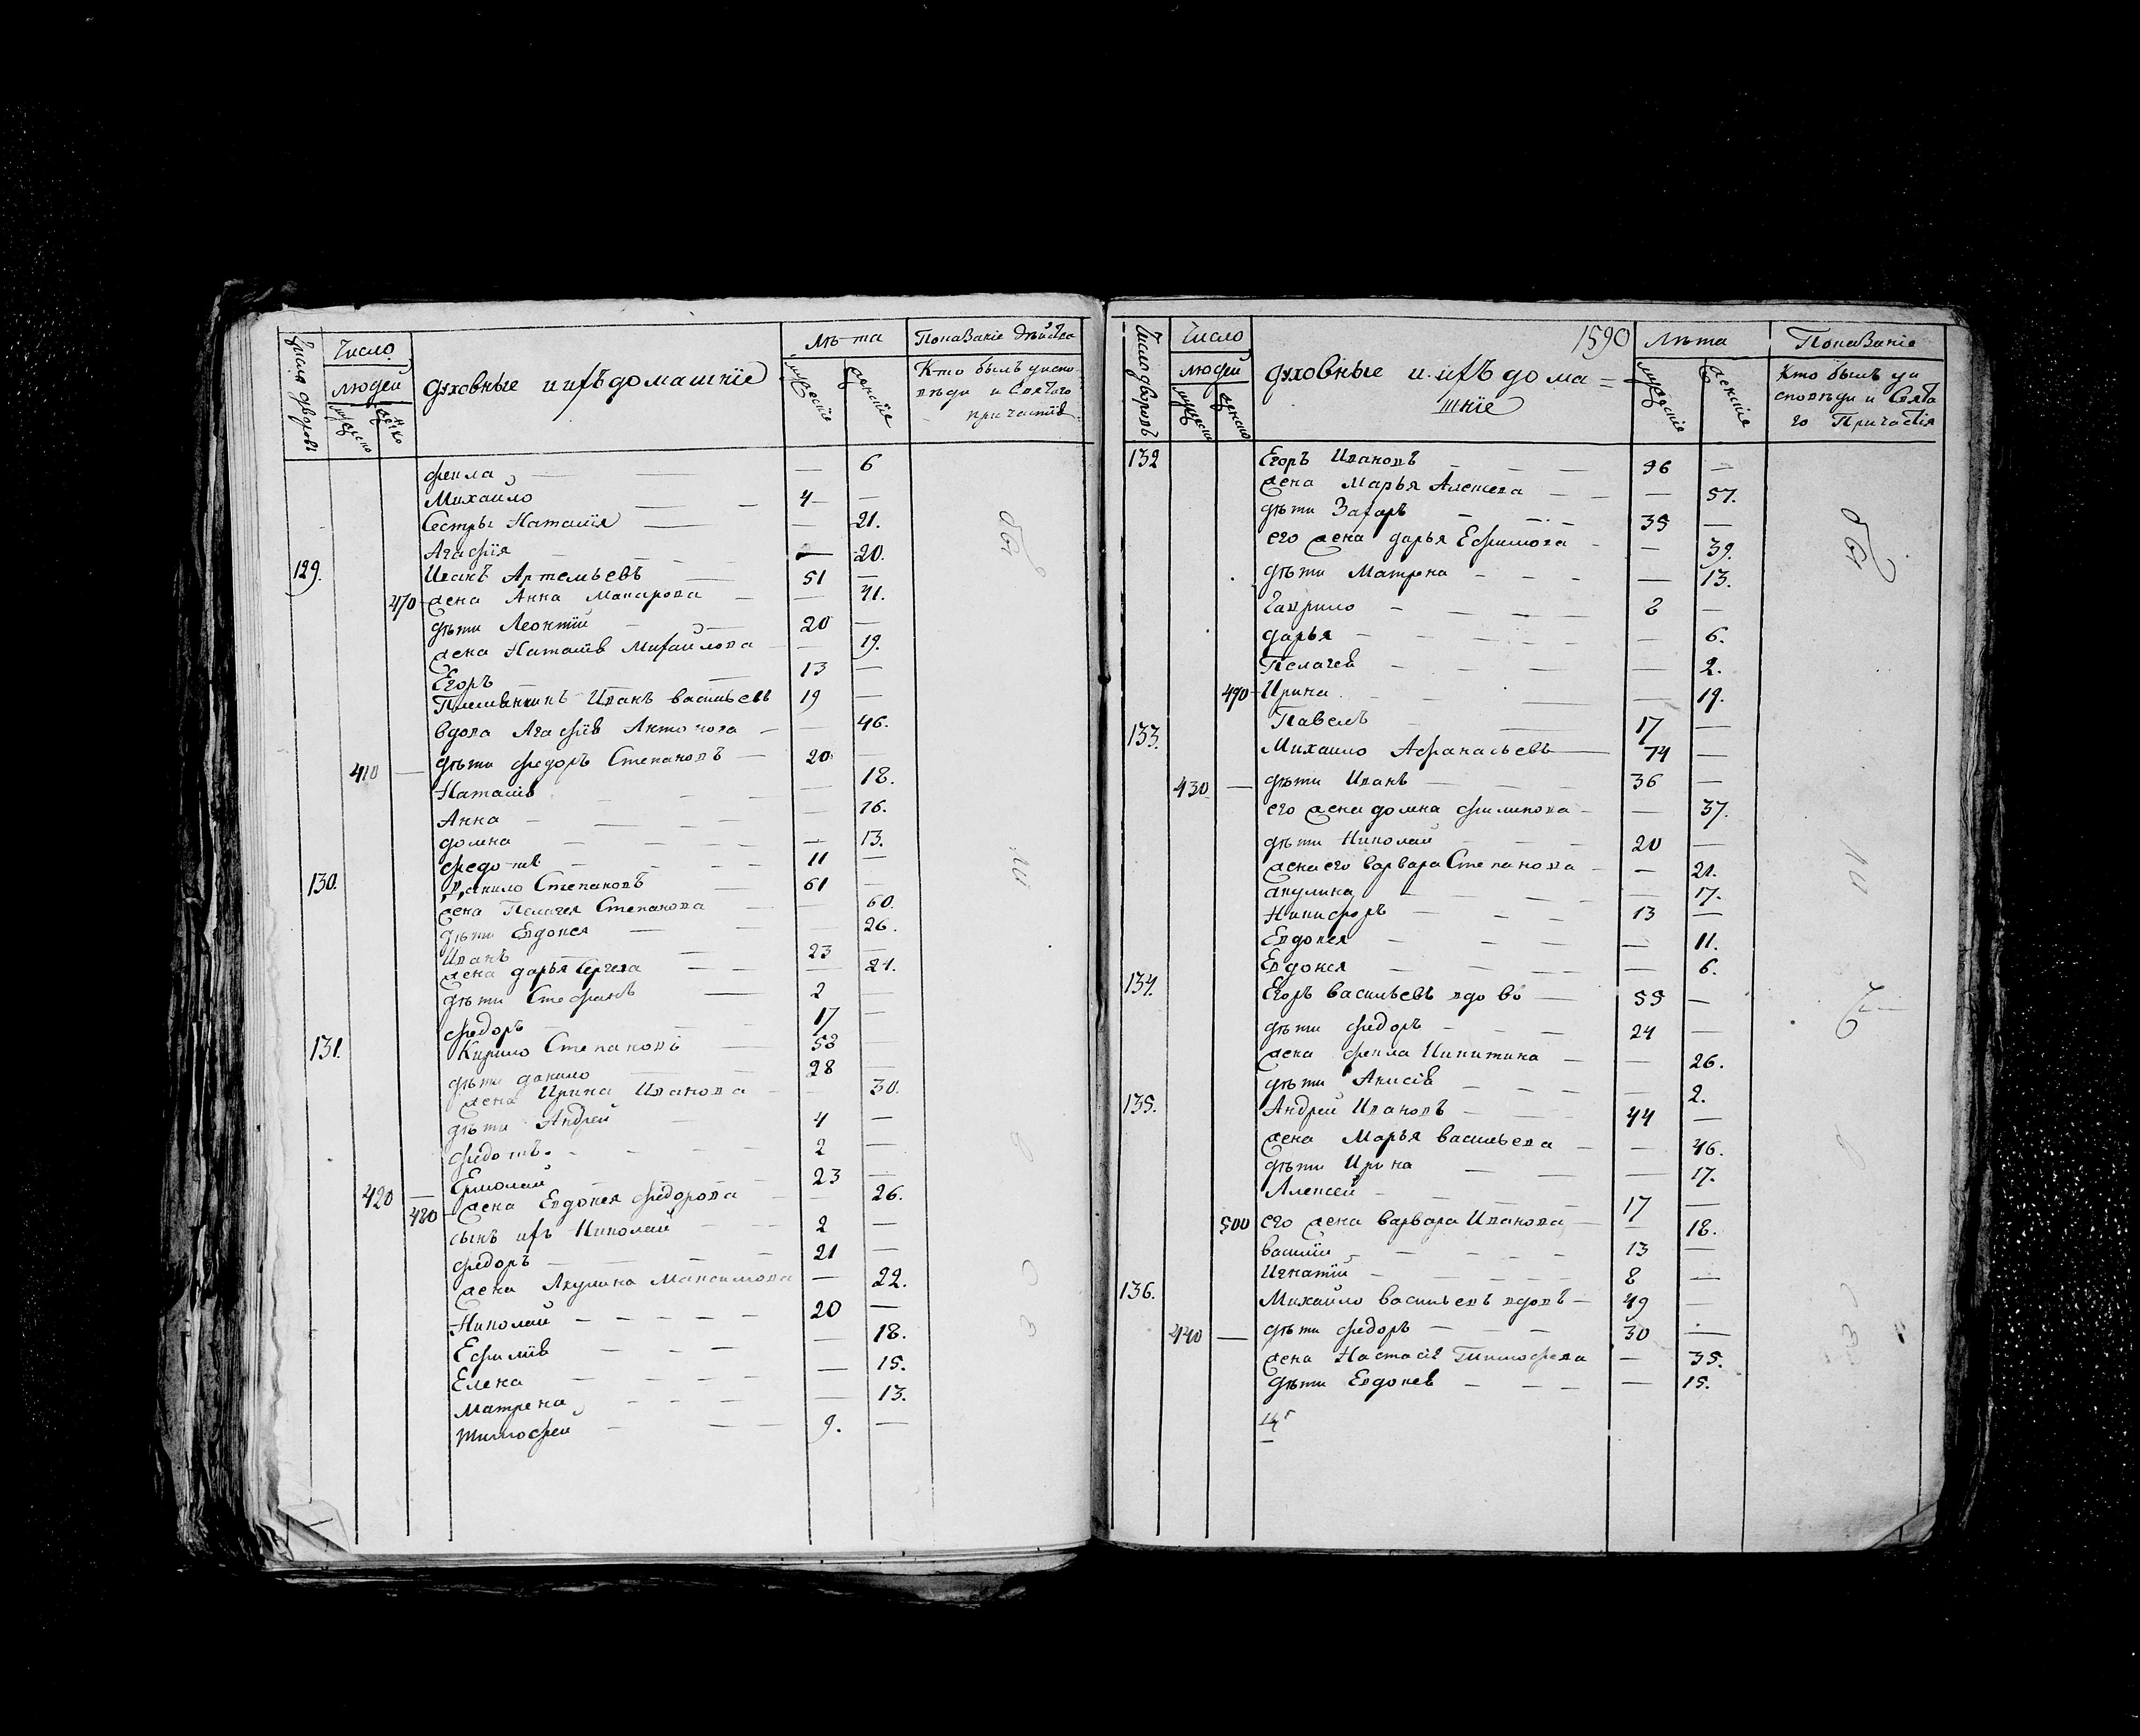 Число дворовъ
Число
людей
мужеско
женско
духовные и ихъ домашнїе
Лѣта
мужескїе
женскїе
Показанїе дѣйства
Кто былъ у испо
вѣди и Святаго
причастїя
фекла — — 6
Михайло 4 —
Сестры Наталїя — 21.
Агафїя — 20.
129. Иванъ Артемьевъ 51 —
470 жена Анна Макарова — 41.
дѣти Леонтїй 20 —
жена Наталїя Михайлова — 19.
Егоръ 13 —
Племянникъ Иванъ васильевъ 19 —
вдова Агафїя Антонова — 46.
410 — дѣти федоръ Степановъ 20 —
Наталїя — 18.
Анна — 16.
домна — 13.
федотъ 11 —
130. Данило Степановъ 61 —
жена Пелагея Степанова — 60.
дѣти Евдокея — 26.
Иванъ 23 —
жена дарья Сергева — 21.
дѣти Стефанъ 2 —
федоръ 17 —
131. Кирило Степановъ 58 —
дѣти данило 28 —
жена Ирина Иванова — 30.
дѣти Андрей 4 —
федотъ 2 —
Ермолай 23 —
420 — 480 жена Евдокея федорова — 26.
сынъ ихъ Николай 2 —
федоръ 21 —
жена Акулина Максимова — 22.
Николай 20 —
Ефимїя — 18.
Елена — 15.
Матрена — 13.
тимофей 9. —
1590
Число дворовъ
Число
людей
мужеско
женско
духовные и ихъ дома=
шнїе
Лѣта
мужескїе
женскїе
Показанїе
Кто былъ у и
сповѣди и Свята
го Причастїя
132 Егоръ Ивановъ 96 —
жена Марья Алексева — 57.
дѣти Захаръ 35 —
его жена дарья Ефимова — 39.
дѣти Матрена — 13.
Гаврило 8 —
дарья — 6.
Пелагея — 2.
490 Ирина — 19.
Павелъ 17 —
133. Михаило Афанасьевъ 74 —
430 — дѣти Иванъ 36 —
его жена домна филипова — 37.
дѣти Николай 20 —
жена его варвара Степанова — 21.
акулина — 17.
Никифоръ 13 —
Евдокея — 11.
Евдокея — 6.
134. Егоръ васильевъ вдовъ 55 —
дѣти федоръ 24 —
жена фекла Никитина — 26.
дѣти Анисїя — 2.
135. Андрей Ивановъ 44 —
жена Марья васильева — 46.
дѣти Ирина — 17.
Алексей 17 —
500 его жена варвара Иванова — 18.
василїй 13 —
Игнатїй 8 —
136. Михайло васильевъ вдовъ 49 —
440 — дѣти федоръ 30 —
жена Настасїя Тимофеева — 35.
дѣти Евдокея — 15.